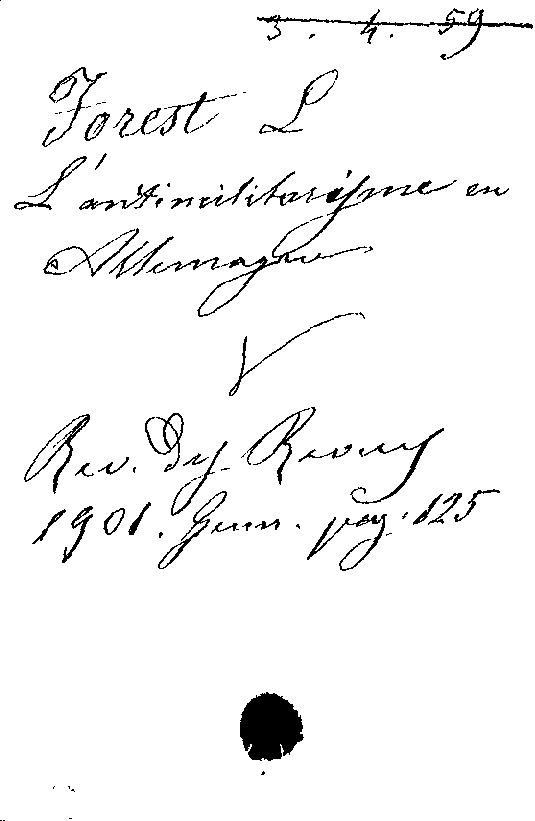 3. 4. 59
Forest L
L'antimilitarisme en
Allemagne
Rev. des Revues
1901. Genn. pag. 125